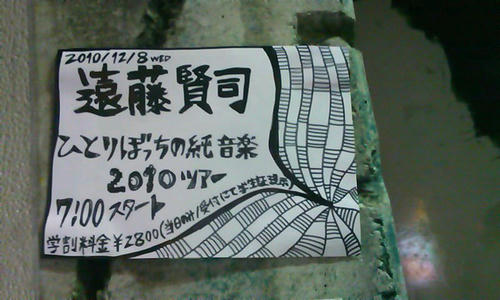 2010/12/8 WED
遠藤賢司
ひとりぼっちの純音楽
2010 ツアー
7:00 スタート
学割料金¥2800(当日のみ/受付にて学生証提示)